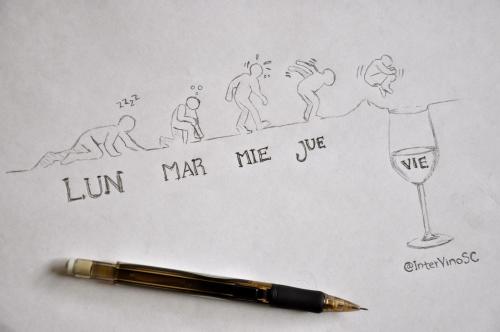 zzzz
LUN MAR MIE JUE
VIE
@InterVinoSC